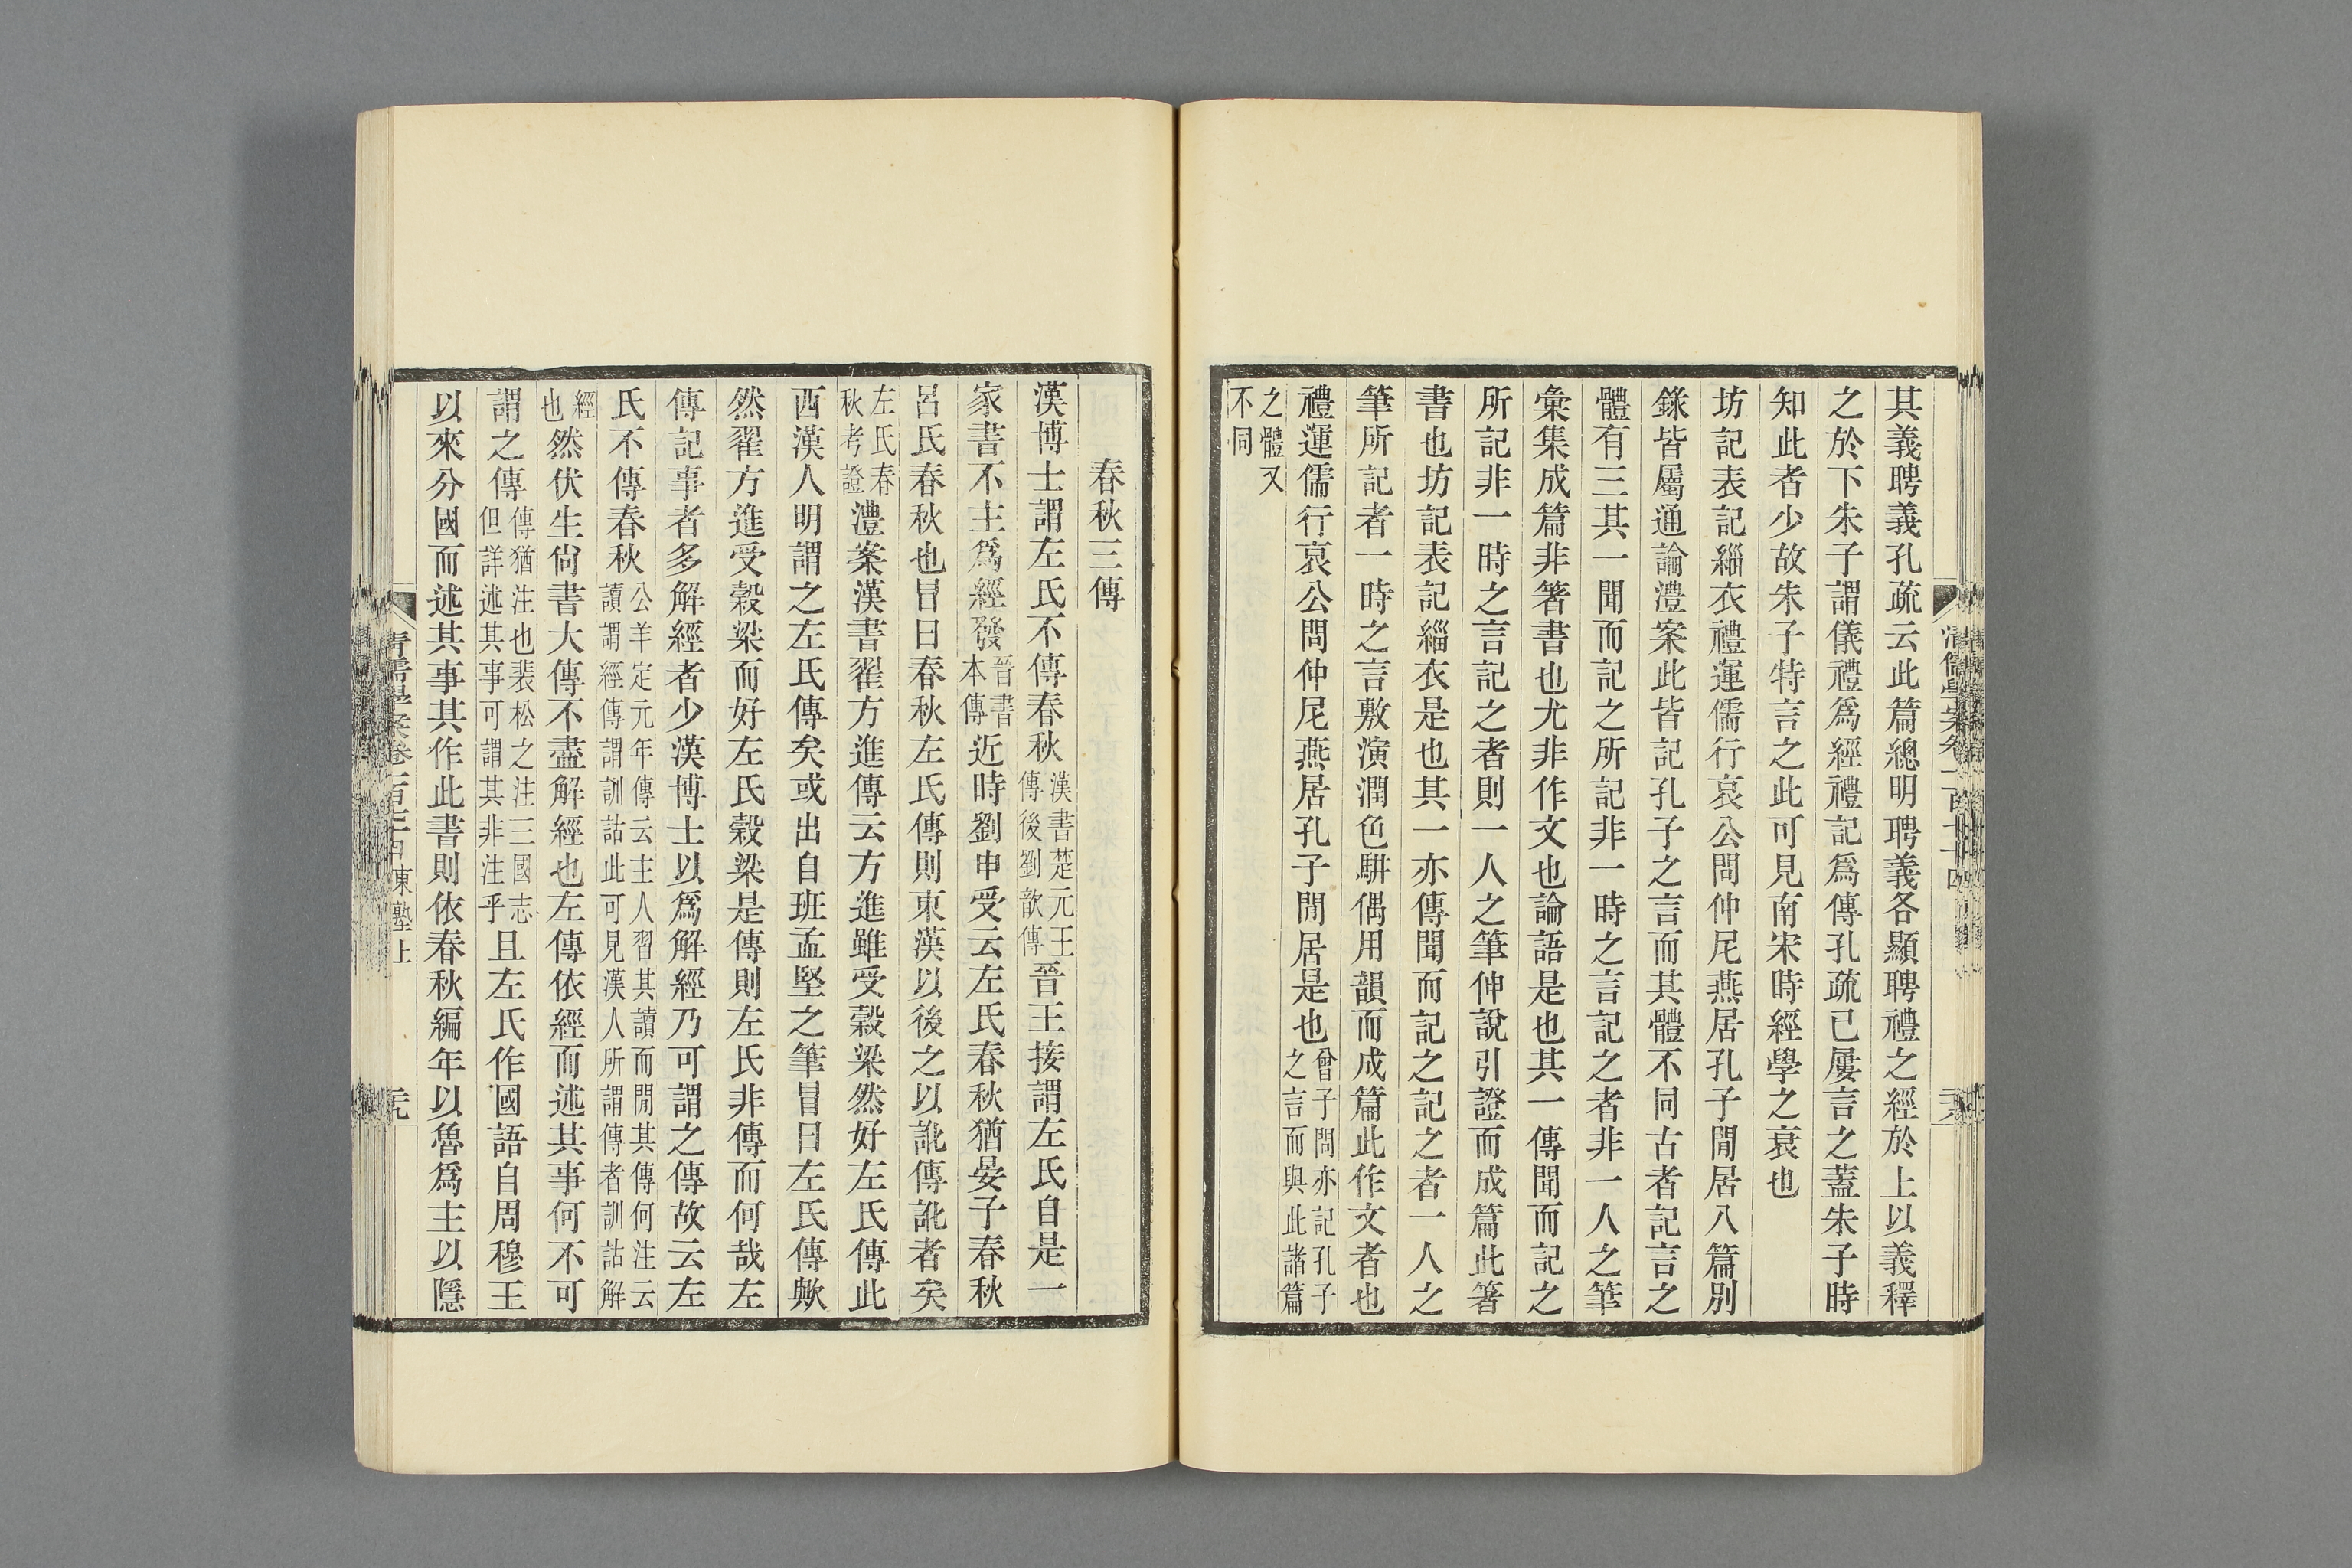 其義聘義孔疏云此篇總明聘義各顯聘禮之經於上以義釋
之於下朱子謂儀禮爲經禮記爲傳孔疏已屢言之蓋朱子時
知此者少故朱子特言之此可見南宋時經學之衰也
坊記表記緇衣禮運儒行哀公問仲尼燕居孔子閒居八篇別
錄皆屬通論澧案此皆記孔子之言而其體不同古者記言之
體有三其一聞而記之所記非一時之言記之者非一人之筆
彙集成篇非箸書也尤非作文也論語是也其一傳聞而記之
所記非一時之言記之者則一人之筆伸說引證而成篇此箸
書也坊記表記緇衣是也其一亦傳聞而記之記之者一人之
筆所記者一時之言敷演潤色騈偶用韻而成篇此作文者也
禮運儒行哀公問仲尼燕居孔子閒居是也曾子問亦記孔子之言而與此諸篇
之體又不同
春秋三傳
漢博士謂左氏不傳春秋漢書楚元王傳後劉歆傳晉王接謂左氏自是一
家書不主爲經發晉書本傳近時劉申受云左氏春秋猶晏子春秋
呂氏春秋也冒曰春秋左氏傳則東漢以後之以訛傳訛者矣
左氏春秋考證澧案漢書翟方進傳云方進雖受穀梁然好左氏傳此
西漢人明謂之左氏傳矣或出自班孟堅之筆冒曰左氏傳歟
然翟方進受穀梁而好左氏穀梁是傳則左氏非傳而何哉左
傳記事者多解經者少漢博士以爲解經乃可謂之傳故云左
氏不傳春秋公羊定元年傳云主人習其讀而問其傳何注云讀謂經傳謂訓詁此可見漢人所謂傳者訓詁解
經也然伏生尙書大傳不盡解經也左傳依經而述其事何不可
謂之傳傳猶注也裴松之注三國志但詳述其事可謂其非注乎且左氏作國語自周穆王
以來分國而述其事其作此書則依春秋編年以魯爲主以隱